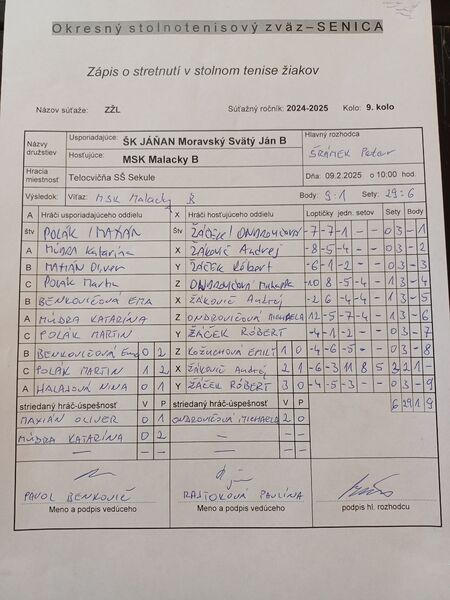 Okresný stolnotenisový zväz–SENICA
Zápis o stretnutí v stolnom tenise žiakov
Názov súťaže: ZŽL Súťažný ročník: 2024-2025 Kolo: 9. kolo
Názvy družstiev Usporiadajúce: ŠK JÁŇAN Moravský Svätý Ján B Hlavný rozhodca
Hosťujúce: MSK Malacky B ŠRÁMEK Peter
Hracia miestnosť Telocvičňa SŠ Sekule Dňa: 09.2.2025 o 10:00 hod.
Výsledok: Víťaz: MSK Malacky B Body: 9:1 Sety: 29:6
A Hráči usporiadajúceho oddielu X Hráči hosťujúceho oddielu Loptičky jedn. setov Sety Body
štv POLÁK / MAXIÁN štv ŽÁČEK / ONDROVIČOVÁ -7 -7 -1 - - 0 3 - 1
A MÚDRA Katarína X ŽÁKOVIČ Andrej -8 -5 -4 - - 0 3 - 2
B MAXIÁN Oliver Y ŽÁČEK Róbert -6 -1 -2 - - 0 3 - 3
C POLÁK Martin Z ONDROVIČOVÁ Michaela -10 8 -5 -4 - 1 3 - 4
B BENKOVIČOVÁ EMA X ŽÁKOVIČ Andrej -2 6 -4 -4 - 1 3 - 5
A MÚDRA KATARÍNA Z ONDROVIČOVÁ MICHAELA 12 -5 -7 -4 - 1 3 - 6
C POLÁK MARTIN Y ŽÁČEK RÓBERT -4 -1 -2 - - 0 3 - 7
B BENKOVIČOVÁ Ema 0 2 Z KOŽUCHOVÁ EMILY 1 0 -4 -6 -5 - - 0 3 - 8
C POLÁK MARTIN 1 2 X ŽÁKOVIČ Andrej 2 1 -6 -3 11 8 5 3 2 1 -
A HALAJOVÁ NINA 0 1 Y ŽÁČEK RÓBERT 3 0 -4 -5 -3 - - 0 3 - 9
striedaný hráč-úspešnosť V P striedaný hráč-úspešnosť V P 6 29 1 9
MAXIÁN OLIVER 0 1 ONDROVIČOVÁ MICHAELA 2 0
MÚDRA KATARÍNA 0 2 — - -
— - - — - -
PAVOL BENKOVIČ RAJTOKOVÁ PAULÍNA
Meno a podpis vedúceho Meno a podpis vedúceho podpis hl. rozhodcu